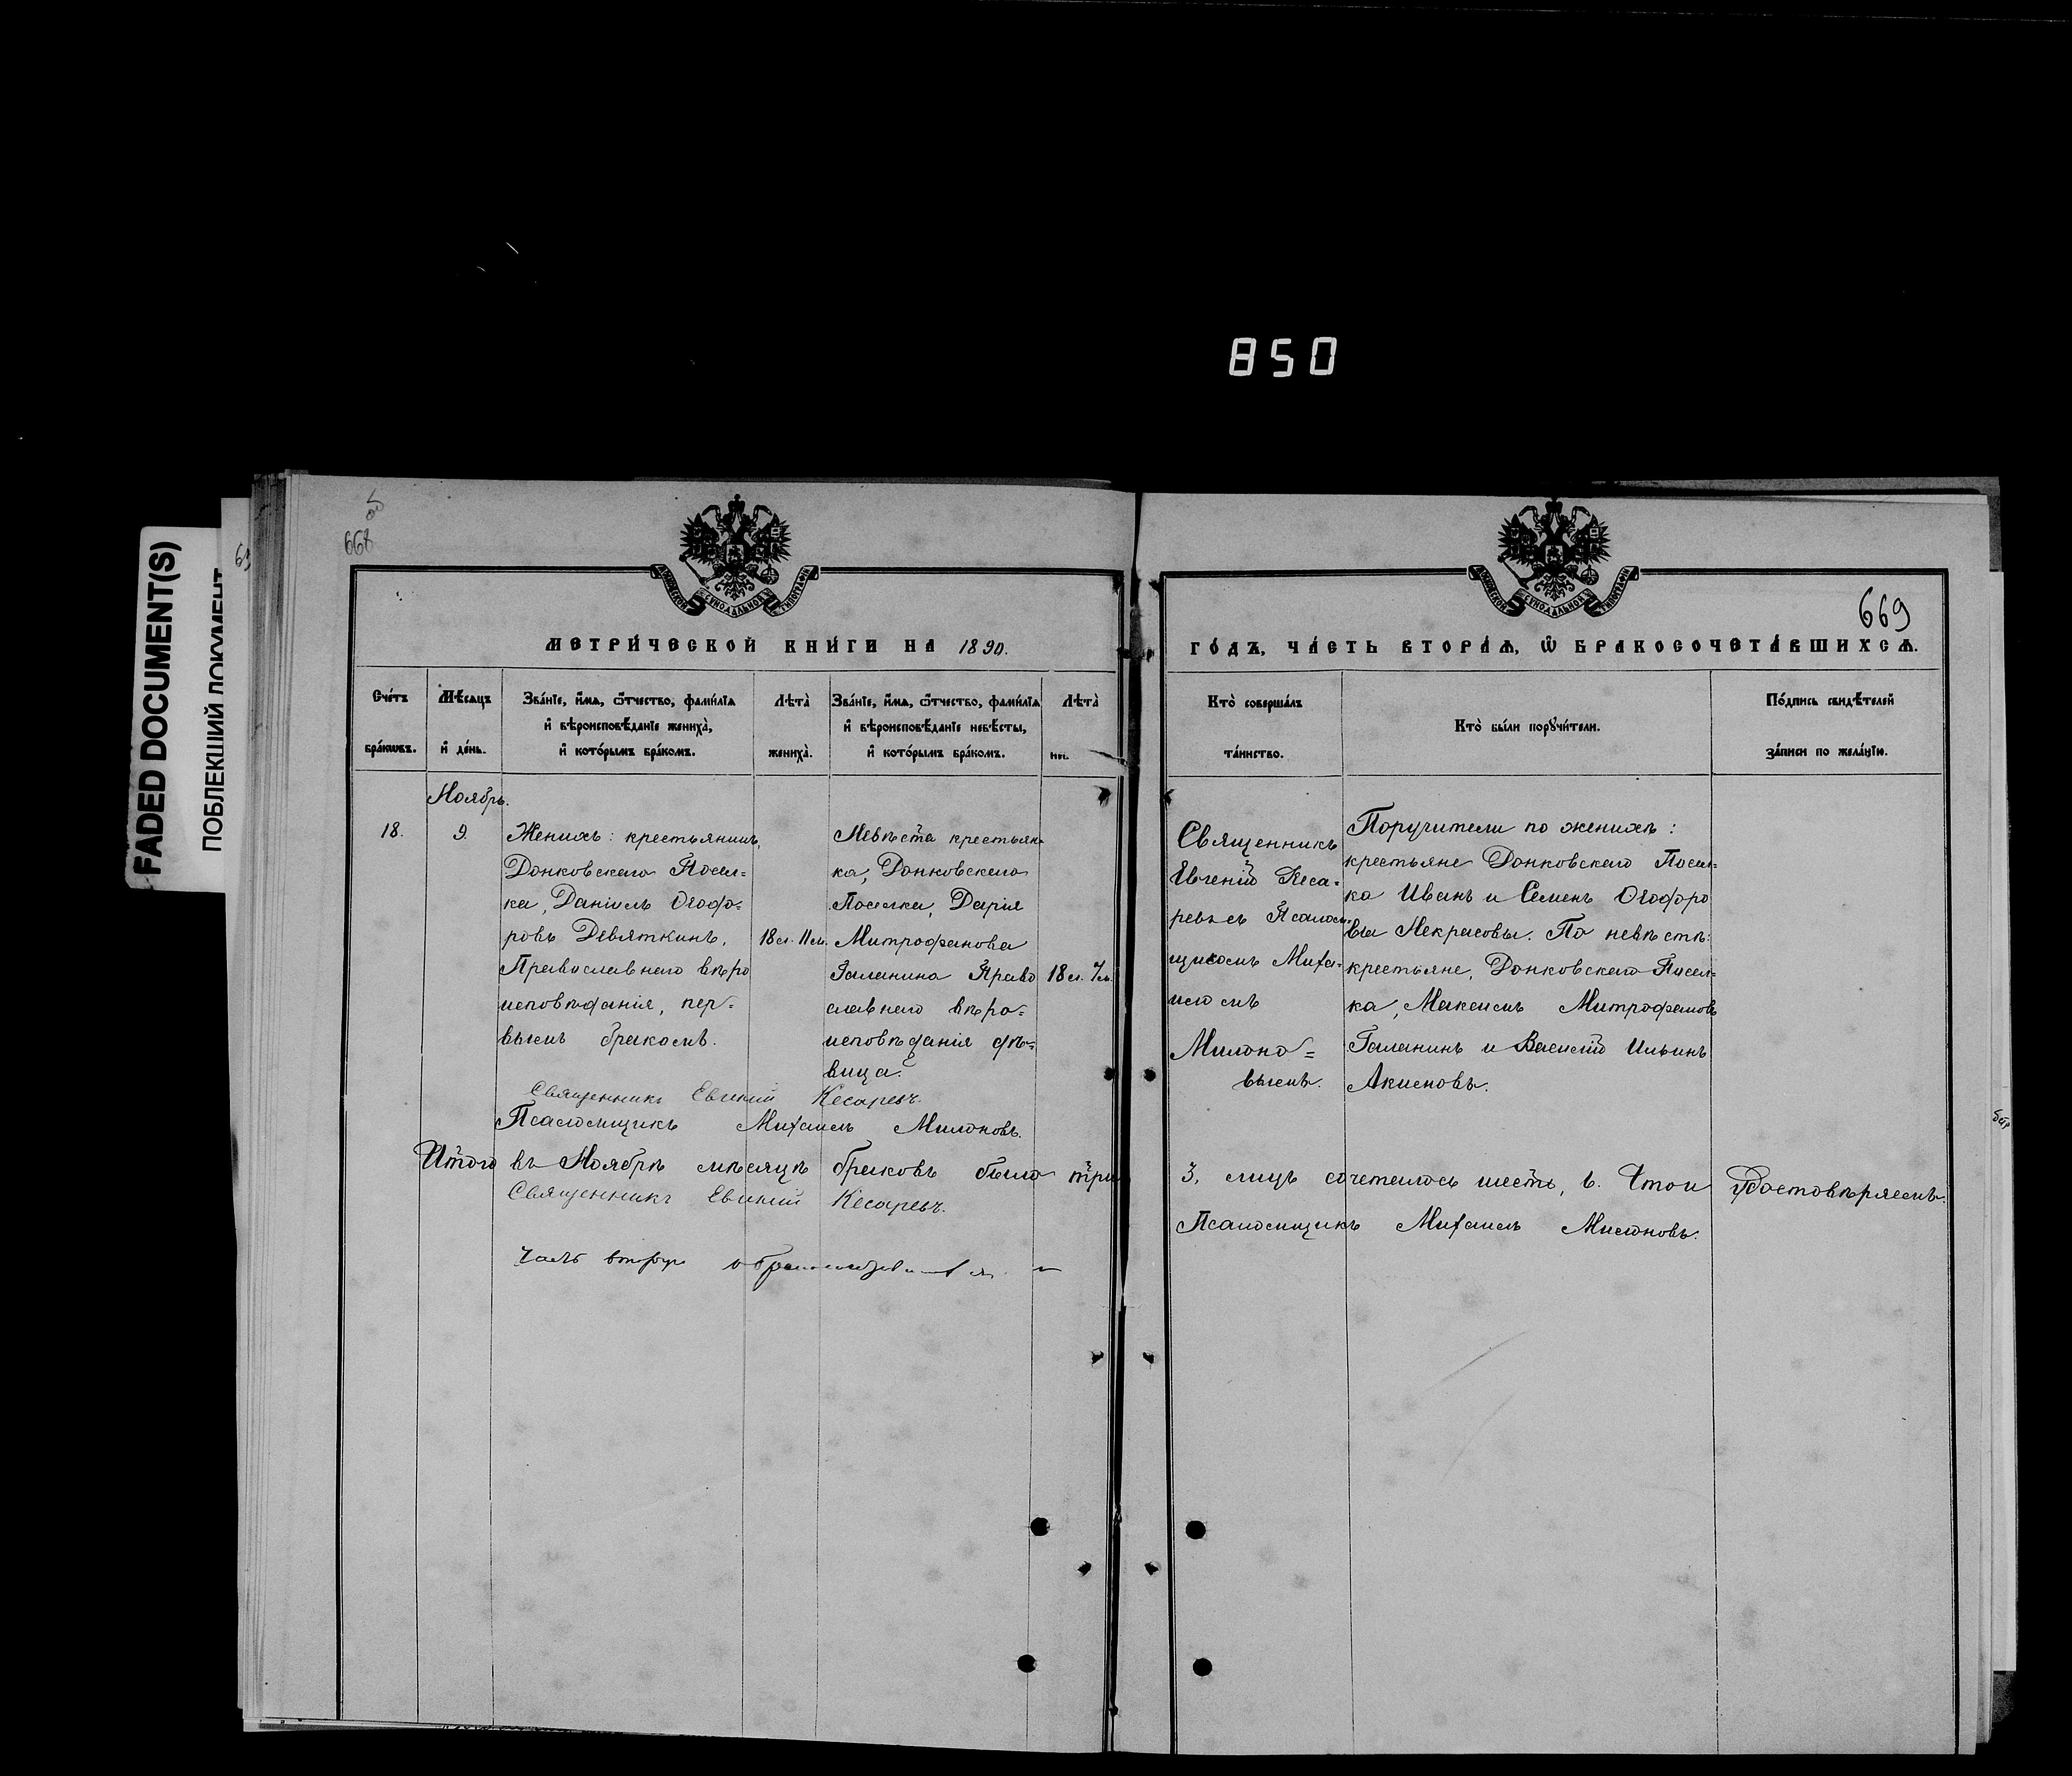 850
FADED DOCUMENT(S)
ПОБЛЕКШИЙ ДОКУМЕНТ
668
669
МЕТРИ́ЧЕСКОЙ КНИ́ГИ НА 1890.
ГО́ДЪ, ЧА́СТЬ ВТОРА́Ѧ, Ѡ҆ БРАКОСОЧЕТА́ВШИХСѦ.
Сче́тъ бра́кѡвъ.
Мѣ́сѧцъ и҆ де́нь.
Зва́нїе, и҆́мѧ, ѻ҆́тчество, фами́лїѧ
и҆ вѣроисповѣ́данїе жениха̀,
и҆ кото́рымъ бра́комъ.
Лѣта̀ жениха̀.
Зва́нїе, и҆́мѧ, ѻ҆́тчество, фами́лїѧ
и҆ вѣроисповѣ́данїе невѣ́сты,
и҆ кото́рымъ бра́комъ.
Лѣта̀
Кто̀ соверша́лъ
та́инство.
Кто̀ бы́ли порꙋчи́тели.
По́дпись свидѣ́телей
за́писи по жела́нїю.
Ноябрь.
18.
9.
Женихъ: крестьянинъ,
Донковскаго Посел=
ка, Даніилъ Ѳеофо=
ровъ Девяткинъ,
Православнаго вѣро
исповѣданія, пер=
вымъ бракомъ.
18 л. 11 м.
Невѣста крестьян=
ка, Донковскаго
Поселка, Дарія
Митрофанова
Галанина Право
славнаго вѣро=
исповѣданія дѣ=
вица.
18 л. 7 м.
Священникъ
Евгеній Кеса=
ревъ съ Псалом=
щикомъ Миха=
иломъ
Милоно=
вымъ.
Поручители по женихѣ:
крестьяне Донковскаго Посел=
ка Иванъ и Семенъ Ѳеофоро
вы Некрасовы. По невѣстѣ:
крестьяне, Донковскаго Посел=
ка, Максимъ Митрофановъ
Галанинъ и Василій Ильинъ
Акимовъ.
Священникъ Евгеній Кесаревъ.
Псаломщикъ Михаилъ Милоновъ.
Итого въ Ноябрѣ мѣсяцѣ браковъ было три
3, лицъ сочеталось шесть, 6. Что и Удостовѣряемъ.
Священникъ Евгеній Кесаревъ.
Псаломщикъ Михаилъ Милоновъ.
Часть вторую